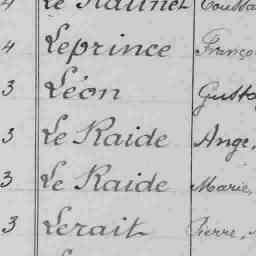 4 Le Raunet Toussa
4 Leprince Franço
3 Léon Gusta
3 Le Raide Ange,
3 Le Raide Marie,
3 Lerait Pierre,